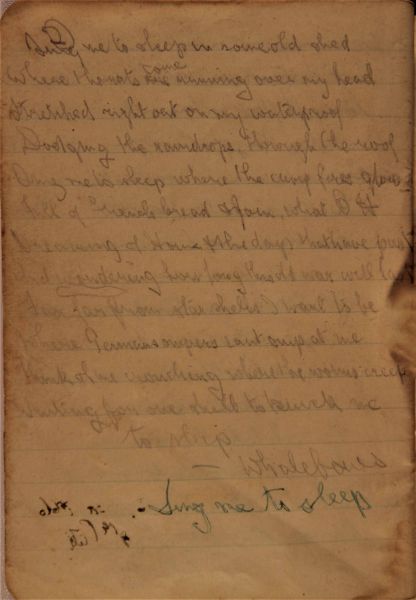 Sing me to sleep in some old shed
Where the rats come running over my head
Stretched right out on my waterproof
Dodging the raindrops through the roof
Sing me to sleep where the camp fires glow
Full of French bread & jam what
Dreaming of Home & the days that have
And wondering how long this war will
Far far from star shells I want to be
Where Germans snipers cant snip at me
Think of me crouching where the worms creep
Waiting for one shell to
to sleep
— Whalebones
Sing me to sleep